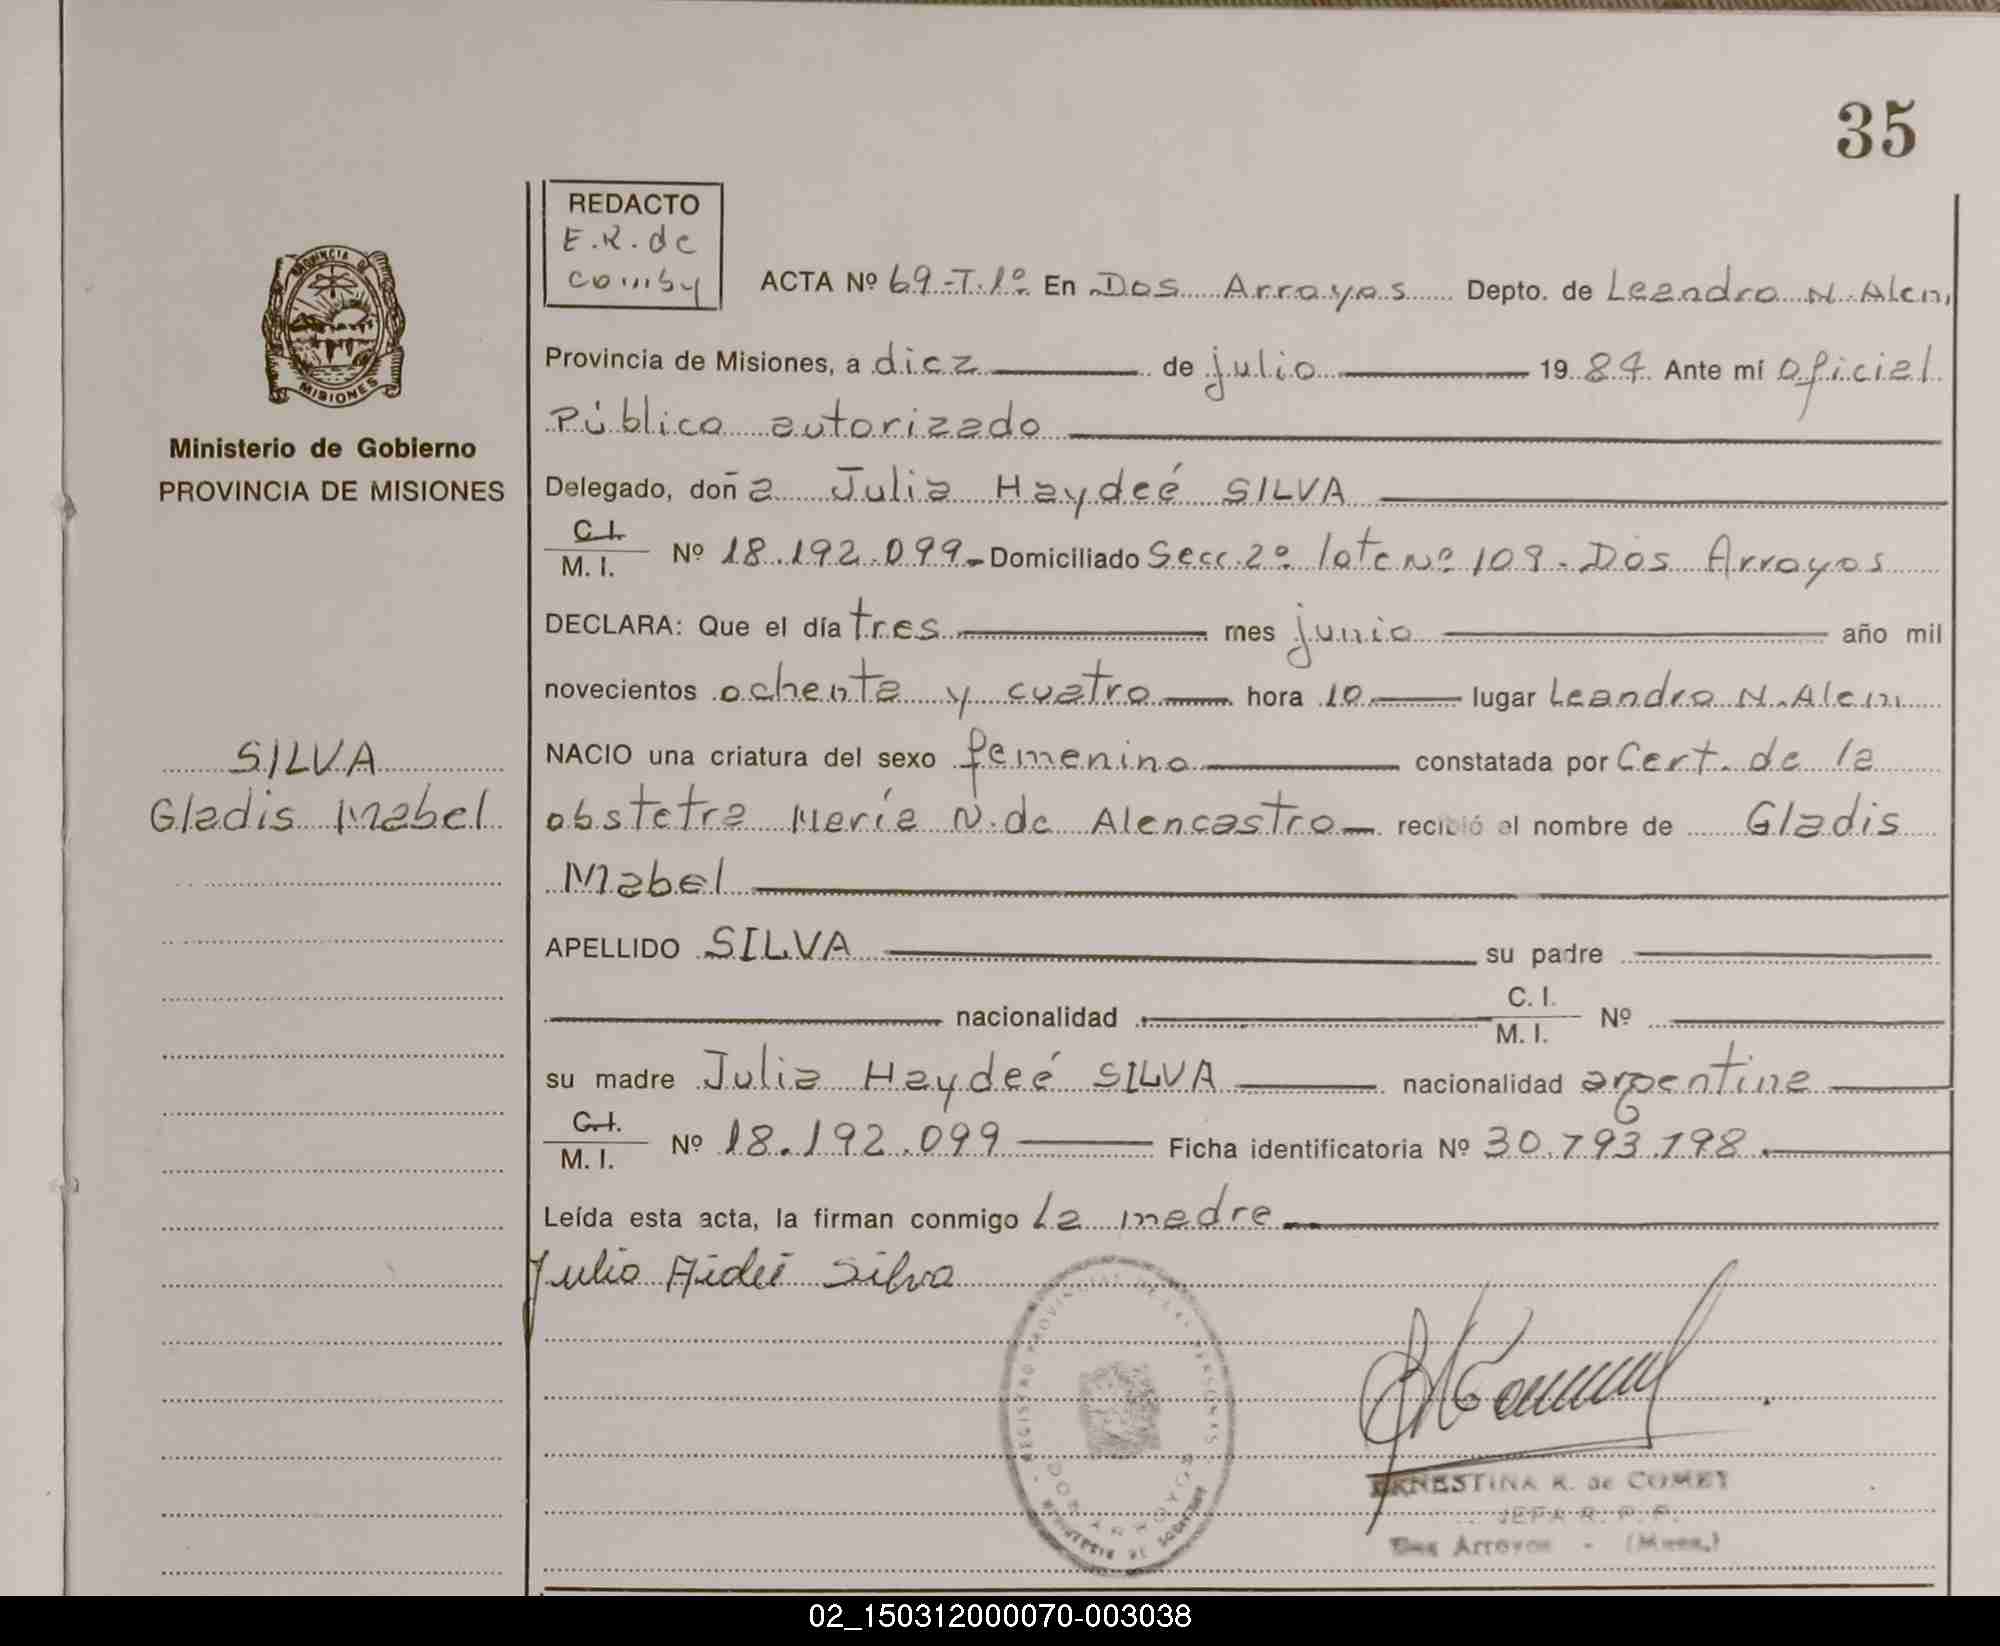 35
REDACTO
E.R. de
ACTA Nº 69-T.1º En Dos Arroyos Depto. de Leandro N. Alem,
Provincia de Misiones, a diez de julio 1984 Ante mí Oficial
Público autorizado
PROVINCIA DE
MISIONES
Ministerio de Gobierno
PROVINCIA DE MISIONES
Delegado, doña Julia Haydeé SILVA
C.I.
M. I. Nº 18.192.099.- Domiciliado Secc. 2º lote Nº 109 - Dos Arroyos
DECLARA: Que el día tres mes junio año mil
novecientos ochenta y cuatro hora 10 lugar Leandro N. Alem
SILVA
Gladis Mabel
NACIO una criatura del sexo femenino constatada por Cert. de la
obstetra María N. de Alencastro recibió el nombre de Gladis
Mabel
APELLIDO SILVA su padre
nacionalidad C. I.
M. I. Nº
su madre Julia Haydeé SILVA nacionalidad argentina
C.I.
M. I. Nº 18.192.099 Ficha identificatoria Nº 30.793.798.
Leída esta acta, la firman conmigo la madre
Julia Aideé Silva
REGISTRO PROVINCIAL DE LAS PERSONAS
DOS ARROYOS
MINISTERIO DE GOBIERNO
ERNESTINA K. de COMBY
JEFA R. P. P.
Dos Arroyos - (Mnes.)
02_150312000070-003038